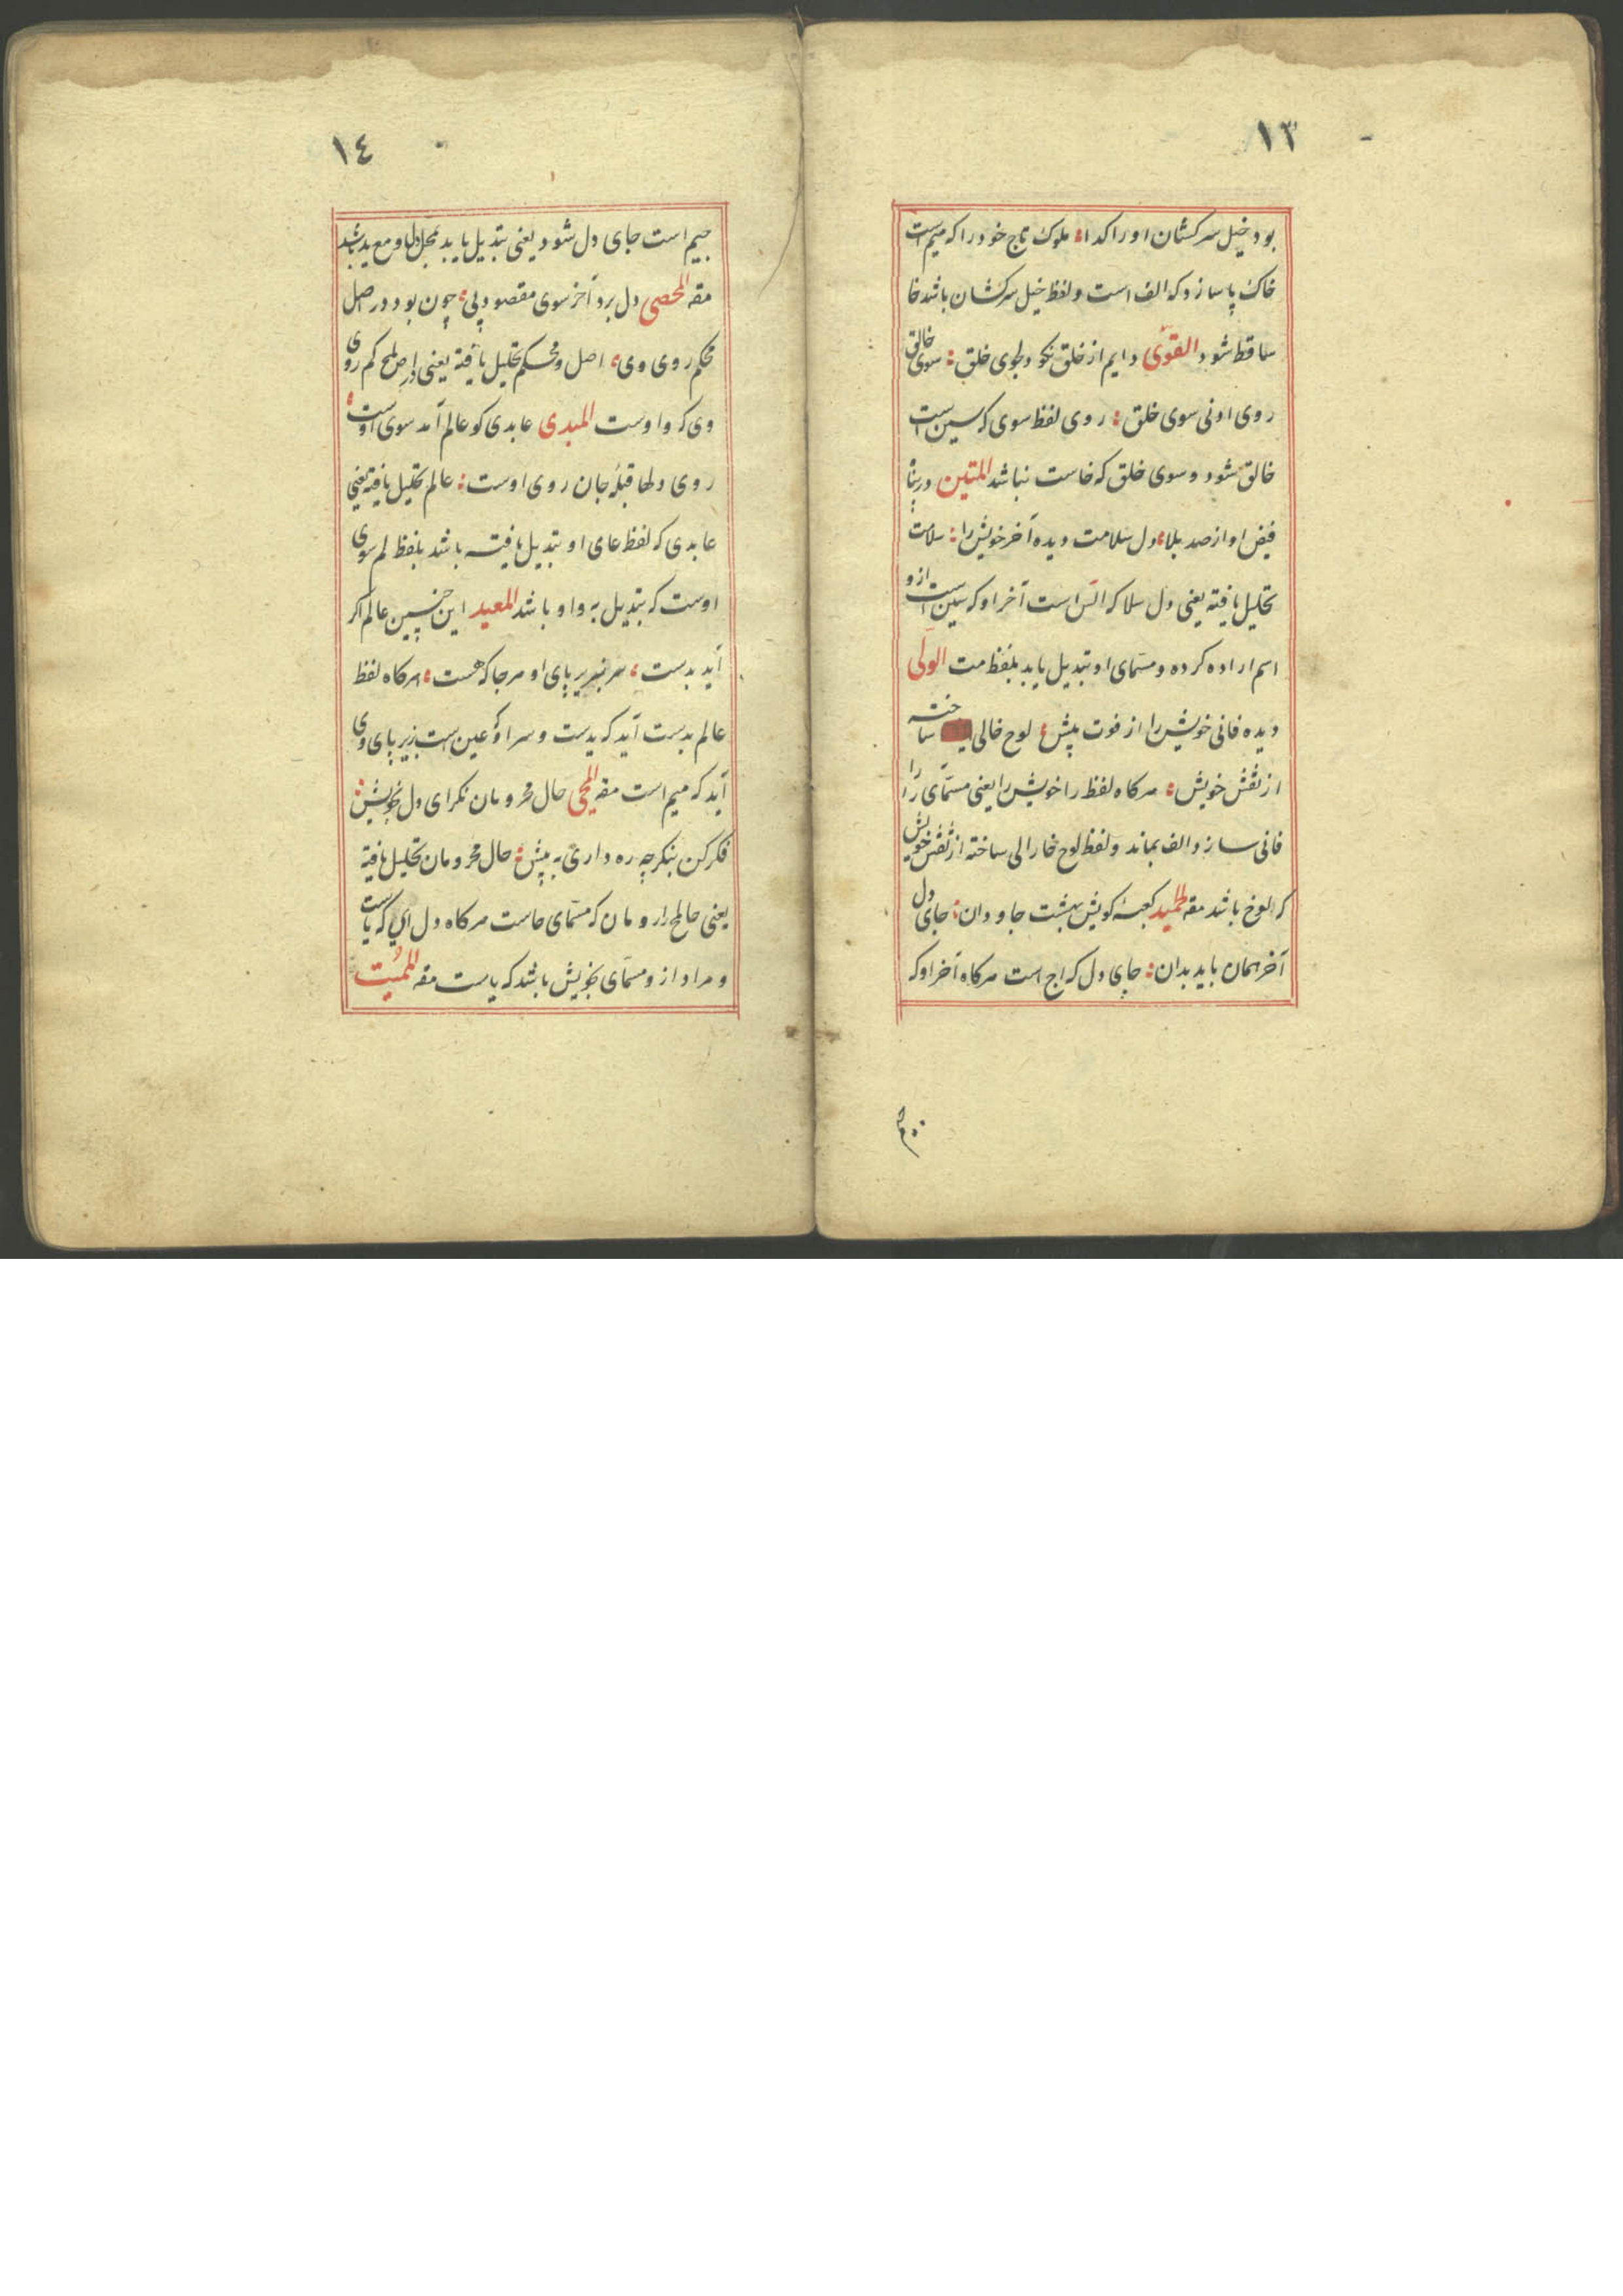 ١٣
بود خیل سرکشان او را کدا ؛ ملوک تاج خود را که میم است
خاک پا سازد که الف است و لفظ خیل سرکشان باشد خا
ساقط شود القوی دایم از خلق نکو دلجوی خلق ؛ سوی خالق
روی او نی سوی خلق ؛ روی لفظ سوی که سین است
خالق شود و سوی خلق که خاست نباشد المتین در پناه
فیض او از صد بلا ؛ دل سلامت دیده آخر خویش را ؛ سلامت
تحلیل یافته یعنی دل سلا که الس است آخر او که سین است از و
اسم اراده کرده و مسمای او تبدیل یابد بلفظ مت الولی
دیده فانی خویش را از فوت پیش ؛ لوح خالی ساخته
از نقش خویش ؛ هرکاه لفظ را خویش را یعنی مسمای را را
فانی سازد الف بماند و لفظ لوح خا را لی ساخته از نقش خویش
که لوخ باشد مقه الحمید کعبهٔ کویش بهشت جاودان ؛ جای دل
آخر همان باید بدان ؛ جای دل که اج است هرکاه آخر او که
١٤
جیم است جای دل شود یعنی تبدیل یابد بمحل دل او مع ید باشد
مقه المحصی دل برد آخر سوی مقصود پی ؛ چون بود در اصل
محکم روی وی ؛ اصل و محکم تحلیل یافته یعنی در اص لمح کم روی
وی که واوست المبدی عابدی کو عالم آمد سوی اوست ؛
روی دلها قبلهٔ جان روی اوست ؛ عالم تحلیل یافته یعنی
عابدی که لفظ عای او تبدیل یافته باشد بلفظ لم سوی
اوست که تبدیل به واو باشد المعید این چنین عالم اکر
آید بدست ؛ سر نهد بر پای او هرجا که هست ؛ هرکاه لفظ
عالم بدست آید که یدست و سر او که عین است زیر پای وی
آید که میم است مقه المحی حال محرومان نکر ای دل بخویش ؛
فکر کن بنکر چه ره داری به پیش ؛ حال محرومان تحلیل یافته
یعنی حالمح را رومان که مسمای حاست هرکاه دل ای که یاست
و مراد از و مسمای بخویش باشد که یاست مقه الممیت